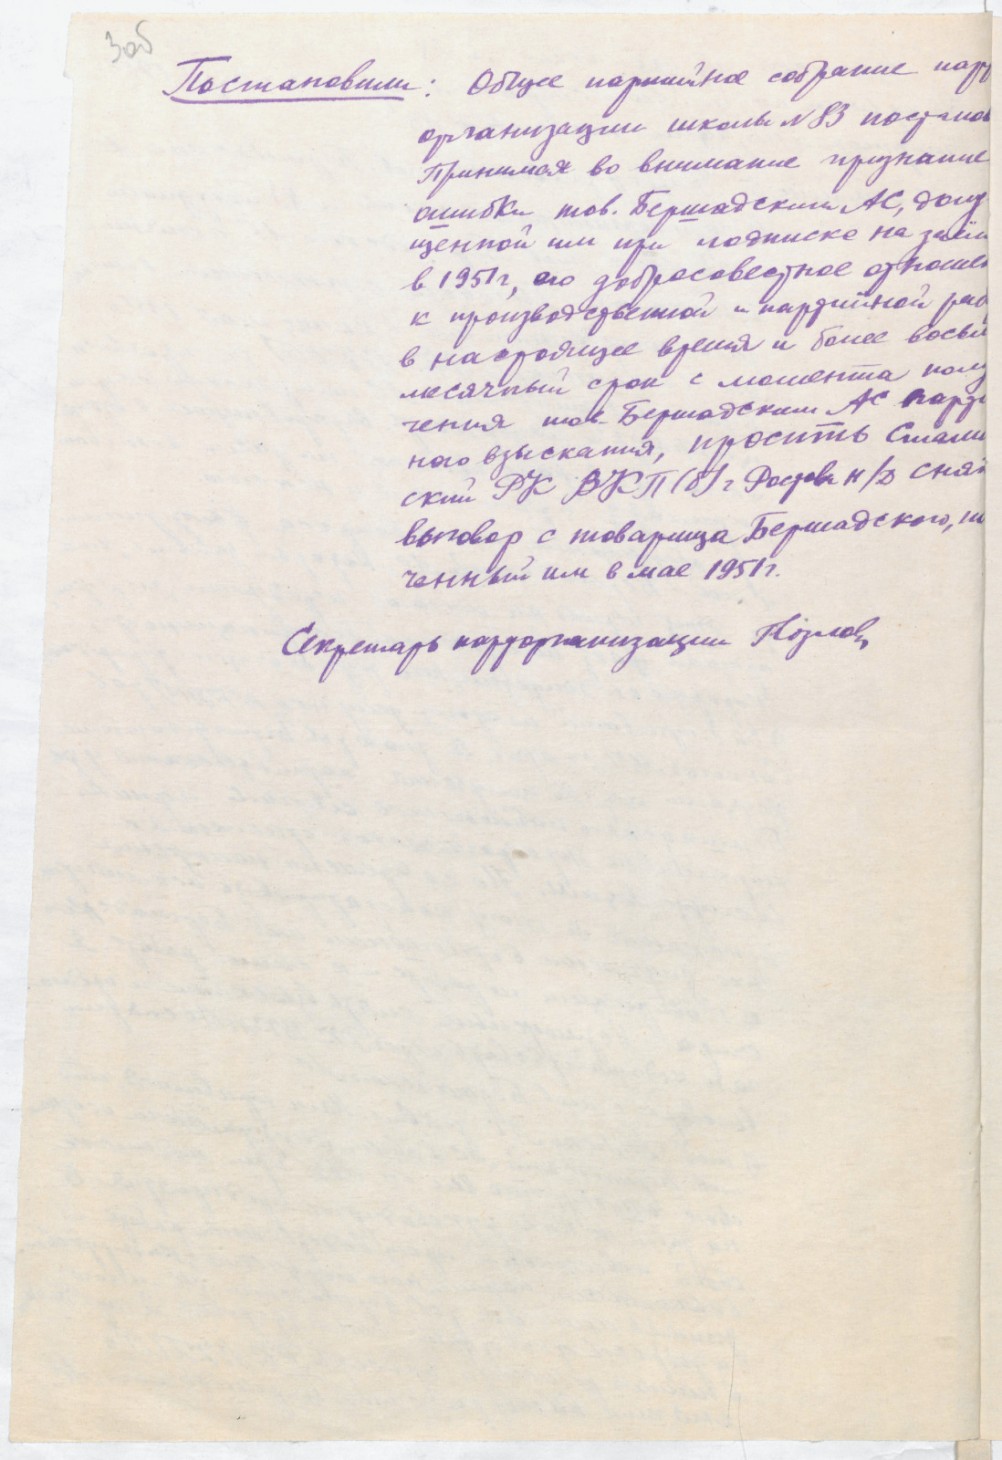 3об
Постановили: Общее партийное собрание парт
организации школы №83 постанов
Принимая во внимание признание
ошибки тов. Бершадским АС, допу
щенной им при подписке на заём
в 1951г, его добросовестное отношен
к производственной и партийной раб
в настоящее время и более восьми
месячный срок с момента полу
чения тов. Бершадским АС парти
ного взыскания, просить Сталин
ский РК ВКП(б) г Ростова н/Д снят
выговор с товарища Бершадского, по
ченный им в мае 1951г.
Секретарь парторганизации